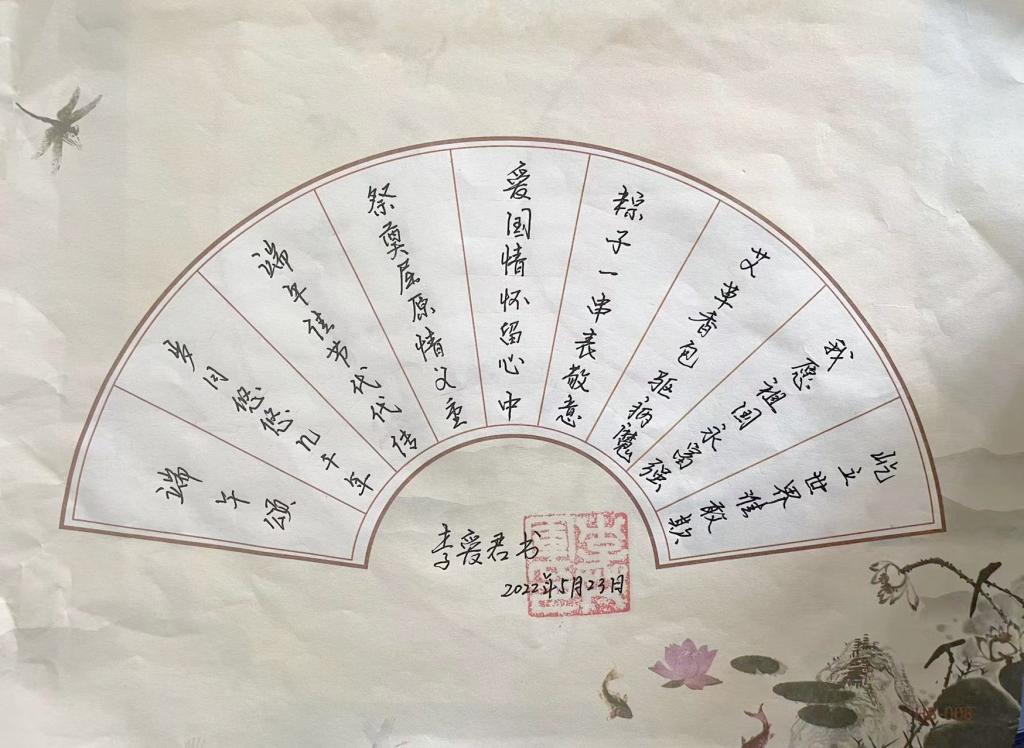 端午颂
岁月悠悠几千年
端午佳节代代传
祭奠屈原情义重
爱国情怀留心中
粽子一串表敬意
艾草香包驱病魔
我愿祖国永富强
屹立世界谁敢欺
李爱君书
2022年5月23日